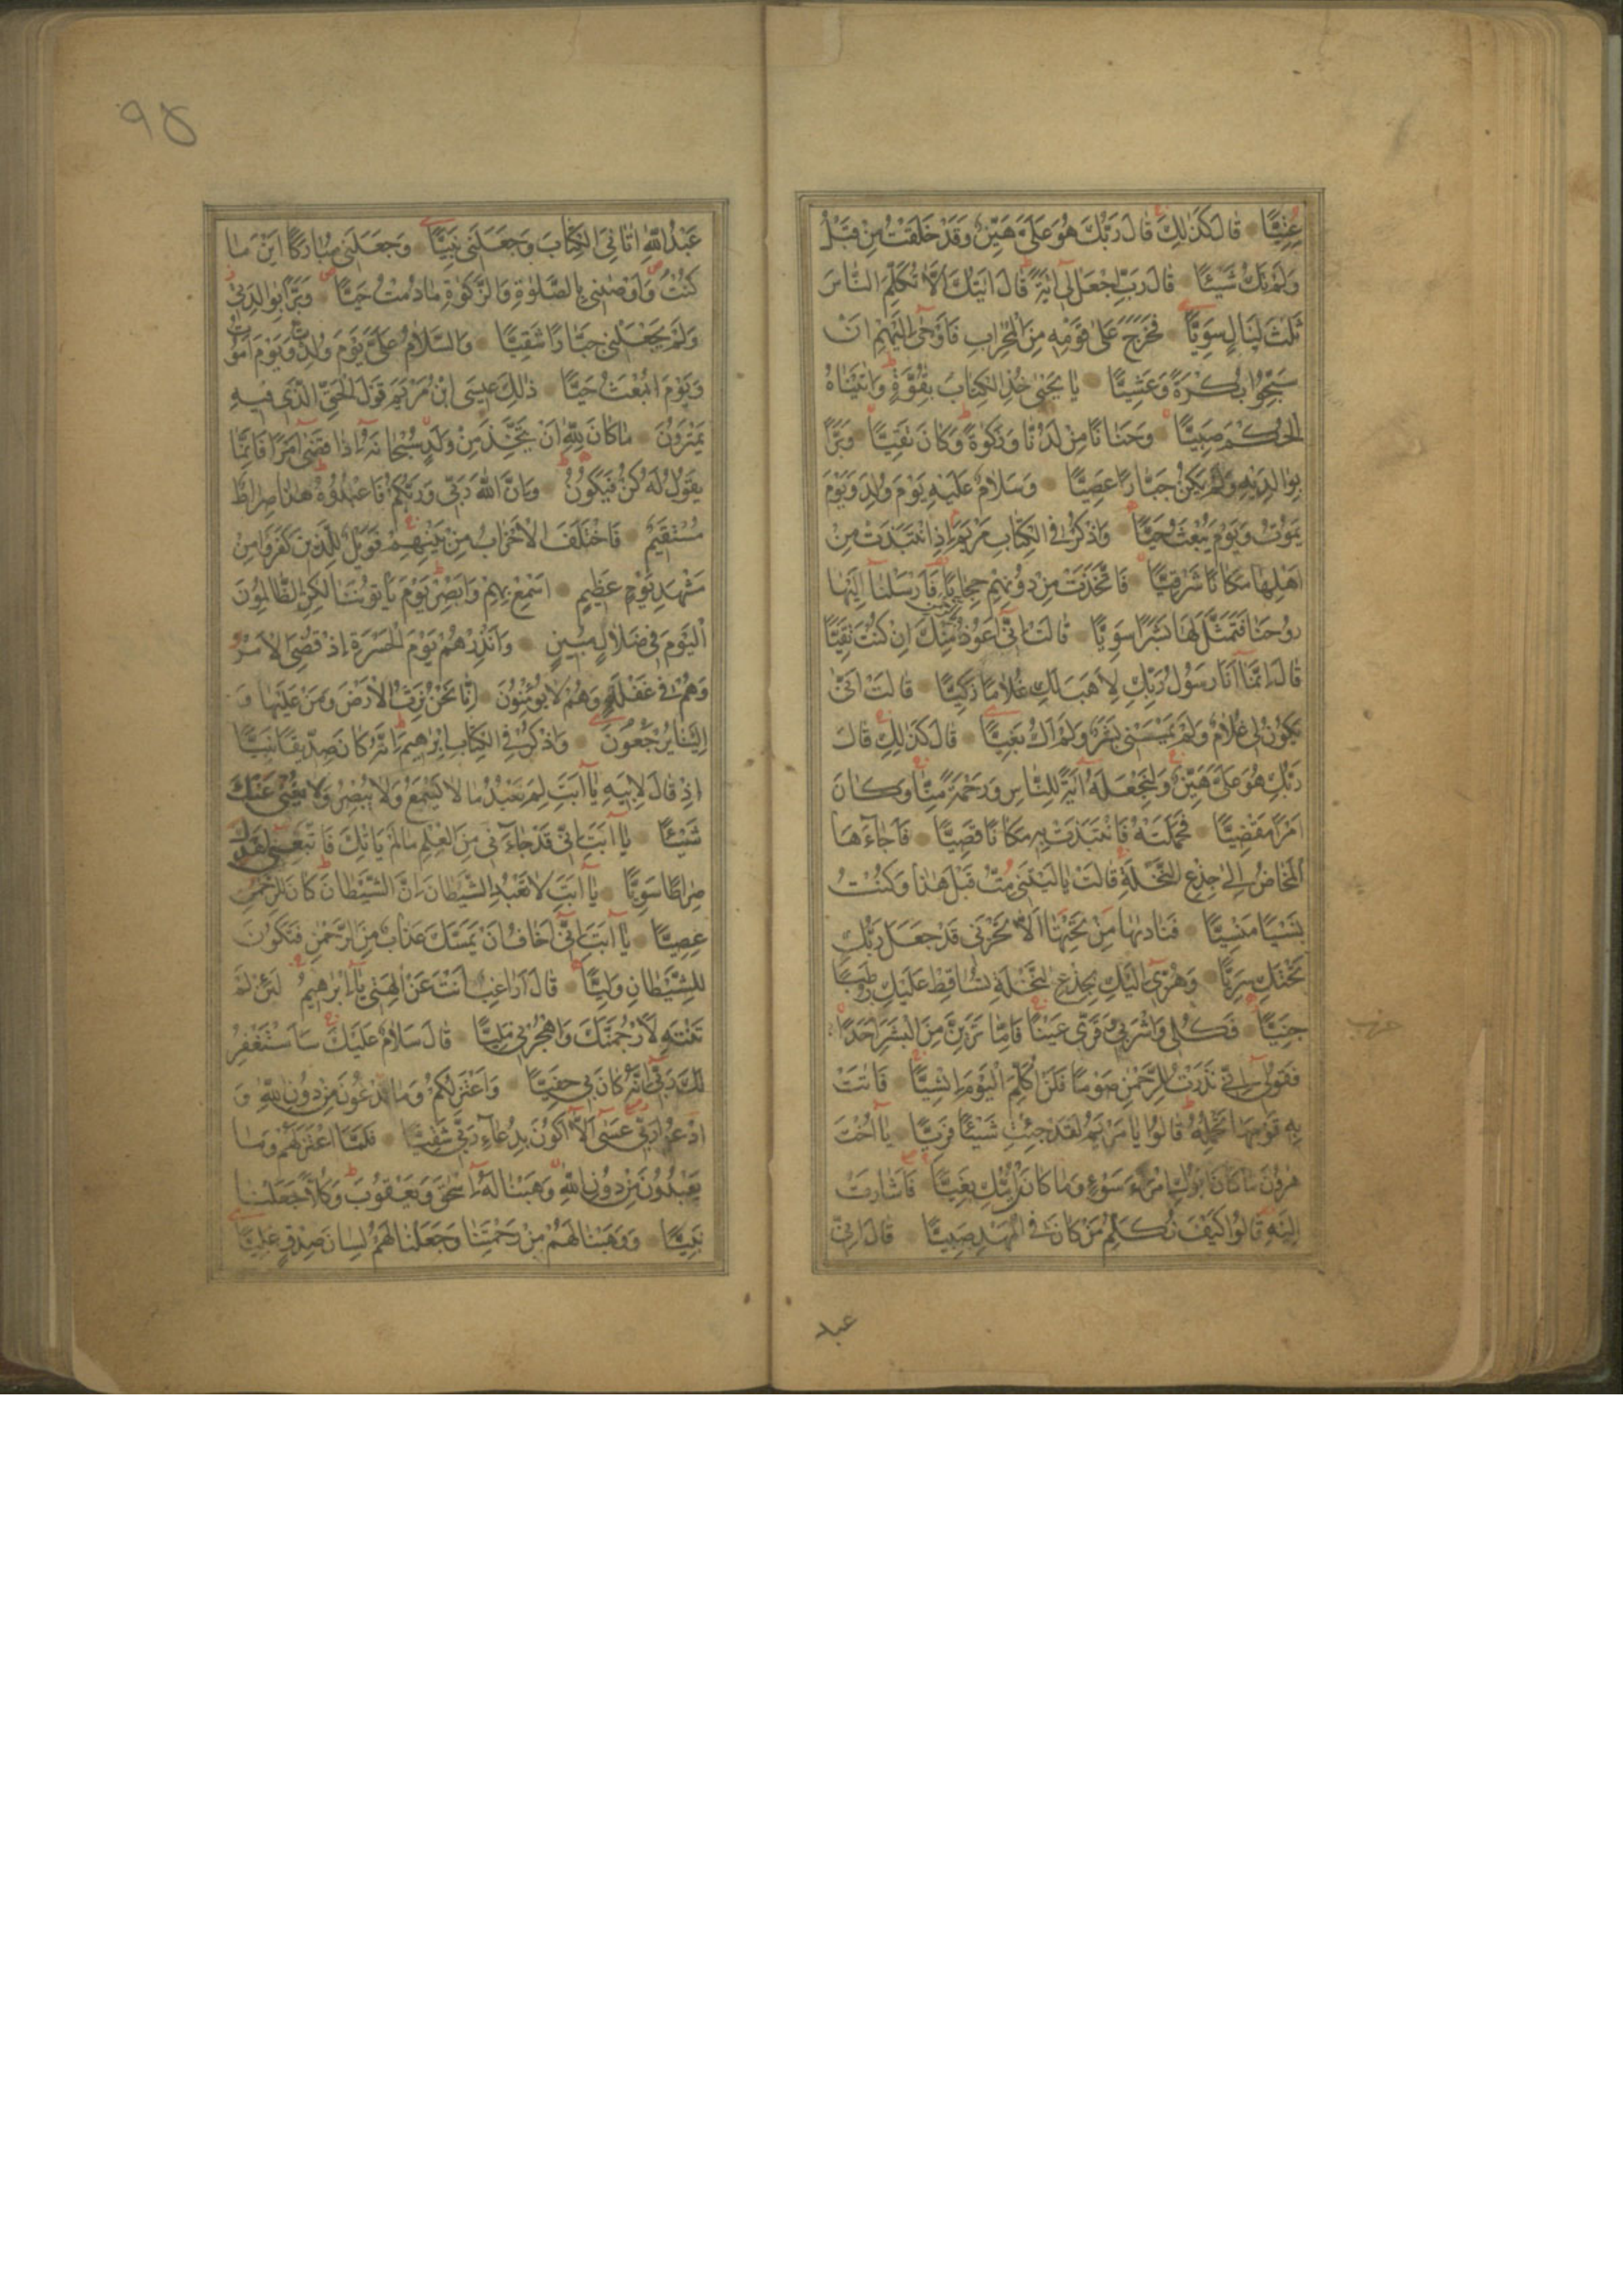 عِتِيًّا قَالَ كَذَٰلِكَ قَالَ رَبُّكَ هُوَ عَلَيَّ هَيِّنٌ وَقَدْ خَلَقْتُكَ مِنْ قَبْلُ
وَلَمْ تَكُ شَيْئًا قَالَ رَبِّ اجْعَلْ لِي آيَةً قَالَ آيَتُكَ أَلَّا تُكَلِّمَ النَّاسَ
ثَلٰثَ لَيَالٍ سَوِيًّا فَخَرَجَ عَلَىٰ قَوْمِهِ مِنَ الْمِحْرَابِ فَأَوْحَىٰ إِلَيْهِمْ أَنْ
سَبِّحُوا بُكْرَةً وَعَشِيًّا يَا يَحْيَىٰ خُذِ الْكِتَابَ بِقُوَّةٍ وَآتَيْنَاهُ
الْحُكْمَ صَبِيًّا وَحَنَانًا مِنْ لَدُنَّا وَزَكٰوةً وَكَانَ تَقِيًّا وَبَرًّا
بِوَالِدَيْهِ وَلَمْ يَكُنْ جَبَّارًا عَصِيًّا وَسَلَامٌ عَلَيْهِ يَوْمَ وُلِدَ وَيَوْمَ
يَمُوتُ وَيَوْمَ يُبْعَثُ حَيًّا وَاذْكُرْ فِي الْكِتَابِ مَرْيَمَ إِذِ انْتَبَذَتْ مِنْ
أَهْلِهَا مَكَانًا شَرْقِيًّا فَاتَّخَذَتْ مِنْ دُونِهِمْ حِجَابًا فَأَرْسَلْنَا إِلَيْهَا
رُوحَنَا فَتَمَثَّلَ لَهَا بَشَرًا سَوِيًّا قَالَتْ إِنِّي أَعُوذُ بِالرَّحْمٰنِ مِنْكَ إِنْ كُنْتَ تَقِيًّا
قَالَ إِنَّمَا أَنَا رَسُولُ رَبِّكِ لِأَهَبَ لَكِ غُلَامًا زَكِيًّا قَالَتْ أَنَّىٰ
يَكُونُ لِي غُلَامٌ وَلَمْ يَمْسَسْنِي بَشَرٌ وَلَمْ أَكُ بَغِيًّا قَالَ كَذَٰلِكِ قَالَ
رَبُّكِ هُوَ عَلَيَّ هَيِّنٌ وَلِنَجْعَلَهُ آيَةً لِلنَّاسِ وَرَحْمَةً مِنَّا وَكَانَ
أَمْرًا مَقْضِيًّا فَحَمَلَتْهُ فَانْتَبَذَتْ بِهِ مَكَانًا قَصِيًّا فَأَجَاءَهَا
الْمَخَاضُ إِلَىٰ جِذْعِ النَّخْلَةِ قَالَتْ يَا لَيْتَنِي مِتُّ قَبْلَ هٰذَا وَكُنْتُ
نَسْيًا مَنْسِيًّا فَنَادٰيهَا مِنْ تَحْتِهَا أَلَّا تَحْزَنِي قَدْ جَعَلَ رَبُّكِ
تَحْتَكِ سَرِيًّا وَهُزِّي إِلَيْكِ بِجِذْعِ النَّخْلَةِ تُسَاقِطْ عَلَيْكِ رُطَبًا
جَنِيًّا فَكُلِي وَاشْرَبِي وَقَرِّي عَيْنًا فَإِمَّا تَرَيِنَّ مِنَ الْبَشَرِ أَحَدًا
فَقُولِي إِنِّي نَذَرْتُ لِلرَّحْمٰنِ صَوْمًا فَلَنْ أُكَلِّمَ الْيَوْمَ إِنْسِيًّا فَأَتَتْ
بِهِ قَوْمَهَا تَحْمِلُهُ قَالُوا يَا مَرْيَمُ لَقَدْ جِئْتِ شَيْئًا فَرِيًّا يَا أُخْتَ
هٰرُونَ مَا كَانَ أَبُوكِ امْرَأَ سَوْءٍ وَمَا كَانَتْ أُمُّكِ بَغِيًّا فَأَشَارَتْ
إِلَيْهِ قَالُوا كَيْفَ نُكَلِّمُ مَنْ كَانَ فِي الْمَهْدِ صَبِيًّا قَالَ إِنِّي
عبد
حزب
٩٥
عَبْدُ اللّٰهِ آتَانِيَ الْكِتَابَ وَجَعَلَنِي نَبِيًّا وَجَعَلَنِي مُبَارَكًا أَيْنَ مَا
كُنْتُ وَأَوْصٰنِي بِالصَّلٰوةِ وَالزَّكٰوةِ مَا دُمْتُ حَيًّا وَبَرًّا بِوَالِدَتِي
وَلَمْ يَجْعَلْنِي جَبَّارًا شَقِيًّا وَالسَّلَامُ عَلَيَّ يَوْمَ وُلِدْتُ وَيَوْمَ أَمُوتُ
وَيَوْمَ أُبْعَثُ حَيًّا ذٰلِكَ عِيسَى ابْنُ مَرْيَمَ قَوْلَ الْحَقِّ الَّذِي فِيهِ
يَمْتَرُونَ مَا كَانَ لِلّٰهِ أَنْ يَتَّخِذَ مِنْ وَلَدٍ سُبْحَانَهُ إِذَا قَضَىٰ أَمْرًا فَإِنَّمَا
يَقُولُ لَهُ كُنْ فَيَكُونُ وَإِنَّ اللّٰهَ رَبِّي وَرَبُّكُمْ فَاعْبُدُوهُ هٰذَا صِرَاطٌ
مُسْتَقِيمٌ فَاخْتَلَفَ الْأَحْزَابُ مِنْ بَيْنِهِمْ فَوَيْلٌ لِلَّذِينَ كَفَرُوا مِنْ
مَشْهَدِ يَوْمٍ عَظِيمٍ أَسْمِعْ بِهِمْ وَأَبْصِرْ يَوْمَ يَأْتُونَنَا لٰكِنِ الظَّالِمُونَ
الْيَوْمَ فِي ضَلَالٍ مُبِينٍ وَأَنْذِرْهُمْ يَوْمَ الْحَسْرَةِ إِذْ قُضِيَ الْأَمْرُ
وَهُمْ فِي غَفْلَةٍ وَهُمْ لَا يُؤْمِنُونَ إِنَّا نَحْنُ نَرِثُ الْأَرْضَ وَمَنْ عَلَيْهَا وَ
إِلَيْنَا يُرْجَعُونَ وَاذْكُرْ فِي الْكِتَابِ إِبْرٰهِيمَ إِنَّهُ كَانَ صِدِّيقًا نَبِيًّا
إِذْ قَالَ لِأَبِيهِ يَا أَبَتِ لِمَ تَعْبُدُ مَا لَا يَسْمَعُ وَلَا يُبْصِرُ وَلَا يُغْنِي عَنْكَ
شَيْئًا يَا أَبَتِ إِنِّي قَدْ جَاءَنِي مِنَ الْعِلْمِ مَا لَمْ يَأْتِكَ فَاتَّبِعْنِي أَهْدِكَ
صِرَاطًا سَوِيًّا يَا أَبَتِ لَا تَعْبُدِ الشَّيْطَانَ إِنَّ الشَّيْطَانَ كَانَ لِلرَّحْمٰنِ
عَصِيًّا يَا أَبَتِ إِنِّي أَخَافُ أَنْ يَمَسَّكَ عَذَابٌ مِنَ الرَّحْمٰنِ فَتَكُونَ
لِلشَّيْطَانِ وَلِيًّا قَالَ أَرَاغِبٌ أَنْتَ عَنْ آلِهَتِي يَا إِبْرٰهِيمُ لَئِنْ لَمْ
تَنْتَهِ لَأَرْجُمَنَّكَ وَاهْجُرْنِي مَلِيًّا قَالَ سَلَامٌ عَلَيْكَ سَأَسْتَغْفِرُ
لَكَ رَبِّي إِنَّهُ كَانَ بِي حَفِيًّا وَأَعْتَزِلُكُمْ وَمَا تَدْعُونَ مِنْ دُونِ اللّٰهِ وَ
أَدْعُو رَبِّي عَسَىٰ أَلَّا أَكُونَ بِدُعَاءِ رَبِّي شَقِيًّا فَلَمَّا اعْتَزَلَهُمْ وَمَا
يَعْبُدُونَ مِنْ دُونِ اللّٰهِ وَهَبْنَا لَهُ إِسْحٰقَ وَيَعْقُوبَ وَكُلًّا جَعَلْنَا
نَبِيًّا وَوَهَبْنَا لَهُمْ مِنْ رَحْمَتِنَا وَجَعَلْنَا لَهُمْ لِسَانَ صِدْقٍ عَلِيًّا